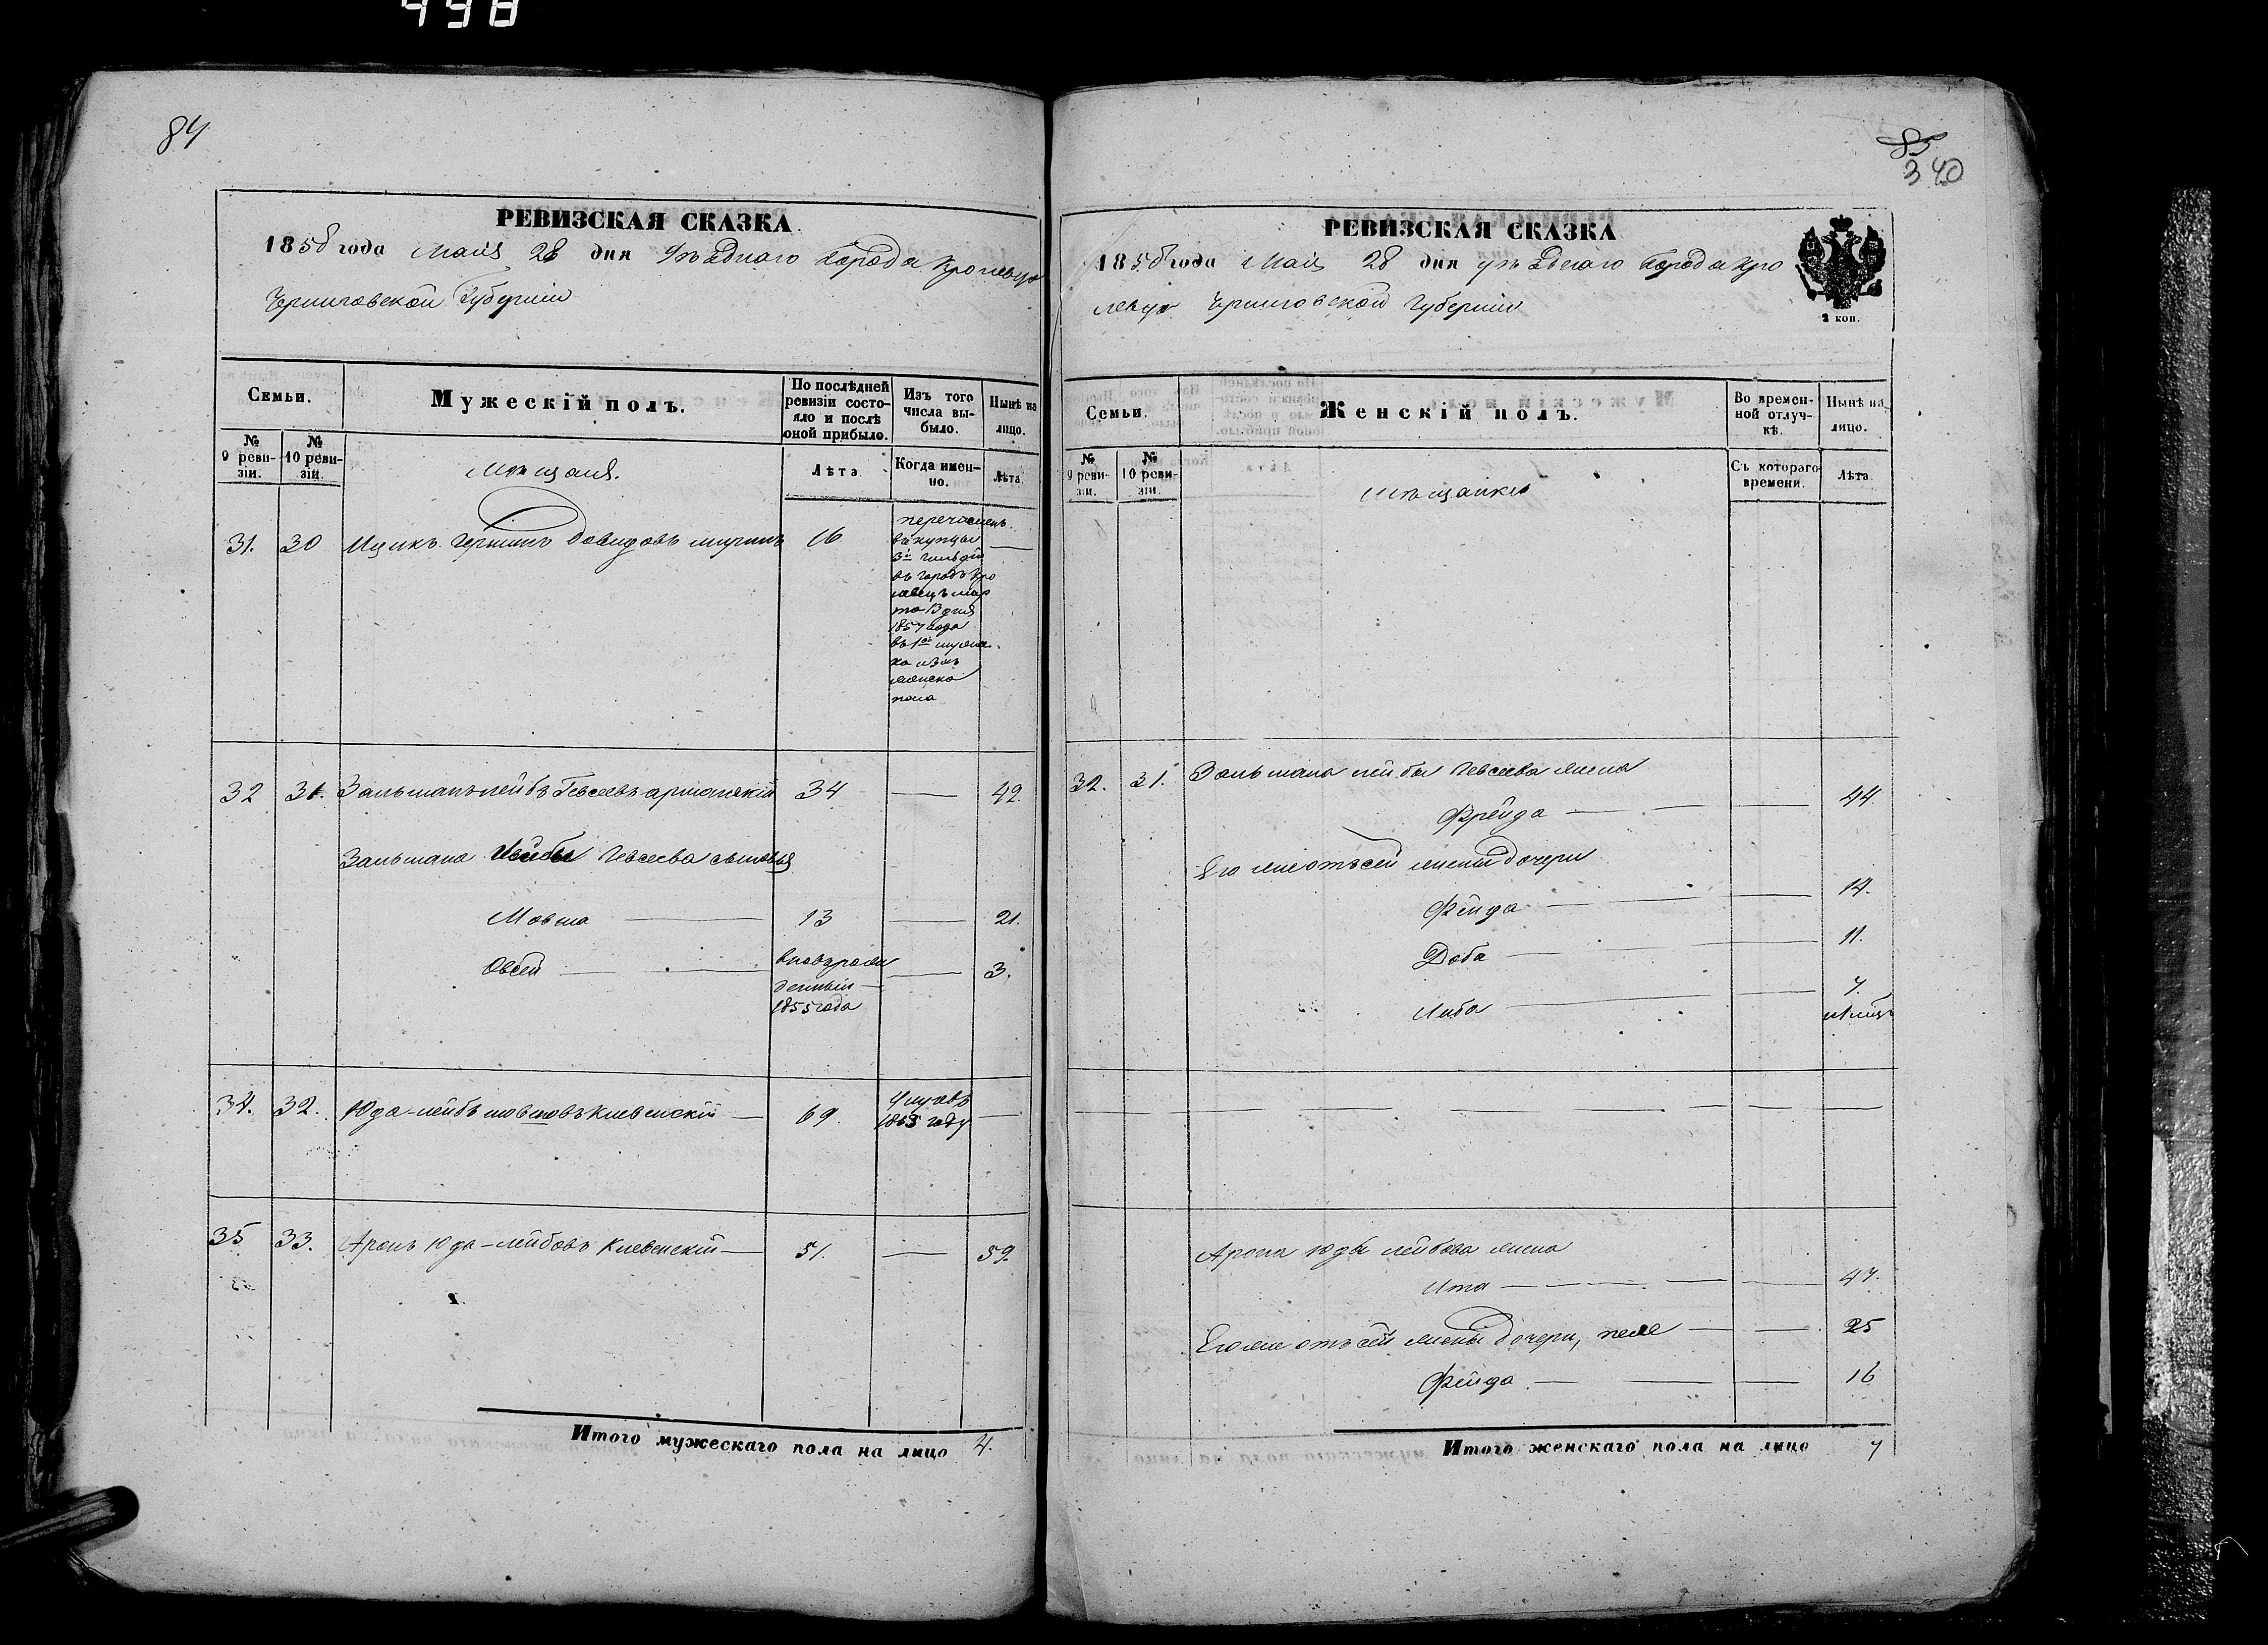 498
84
РЕВИЗСКАЯ СКАЗКА.
1858 года Мая 28 дня уѣзднаго города Кролевца
Черниговской Губерніи
Семьи.
Мужескій полъ.
По послѣдней ревизіи состояло и послѣ оной прибыло.
Изъ того числа выбыло.
Нынѣ на лицо.
№ 9 ревизіи.
№ 10 ревизіи.
Мѣщане.
Лѣта
Когда именно.
Лѣта.
31. 30 Ицикъ Давидовъ 16
перечисленъ
въ купцы
3й гильдіи
въ городъ Кро
левецъ мар
та 13 дня
1857 года
пола
32 31. Залманъ-лейбъ Гевсеевъ 34 — 42.
Залмана Лейбы Гевсеева сыновья
Мовша — 13 — 21.
Овсей — новорож
денный —
1855 года
— 3.
34. 32. Юда-лейбъ мовшовъ Клевенскій — 69
умеръ
1855 году
—
35 33. Аронъ Юда-лейбовъ Клевенскій — 51. — 59.
Итого мужескаго пола на лицо 4.
85
340
РЕВИЗСКАЯ СКАЗКА
1858 года Мая 28 дня уѣзднаго города Кро
левца Черниговской Губерніи
2 коп.
Семьи.
Женскій полъ.
Во временной отлучкѣ.
Нынѣ на лицо.
№ 9 ревизіи.
№ 10 ревизіи.
Мѣщанки
Съ котораго времени.
Лѣта
32. 31. Залмана лейбы Гевсеева жена
Фрейда — — 44.
Его же отъ сей жены дочери
Фейга — — 14.
Доба — — 11.
Либа — — 7.
Арона Юды лейбова жена
Ита — — 47.
Его же отъ сей жены дочери, пеле — — 25
Фейга — — 16
Итого женскаго пола на лицо 7